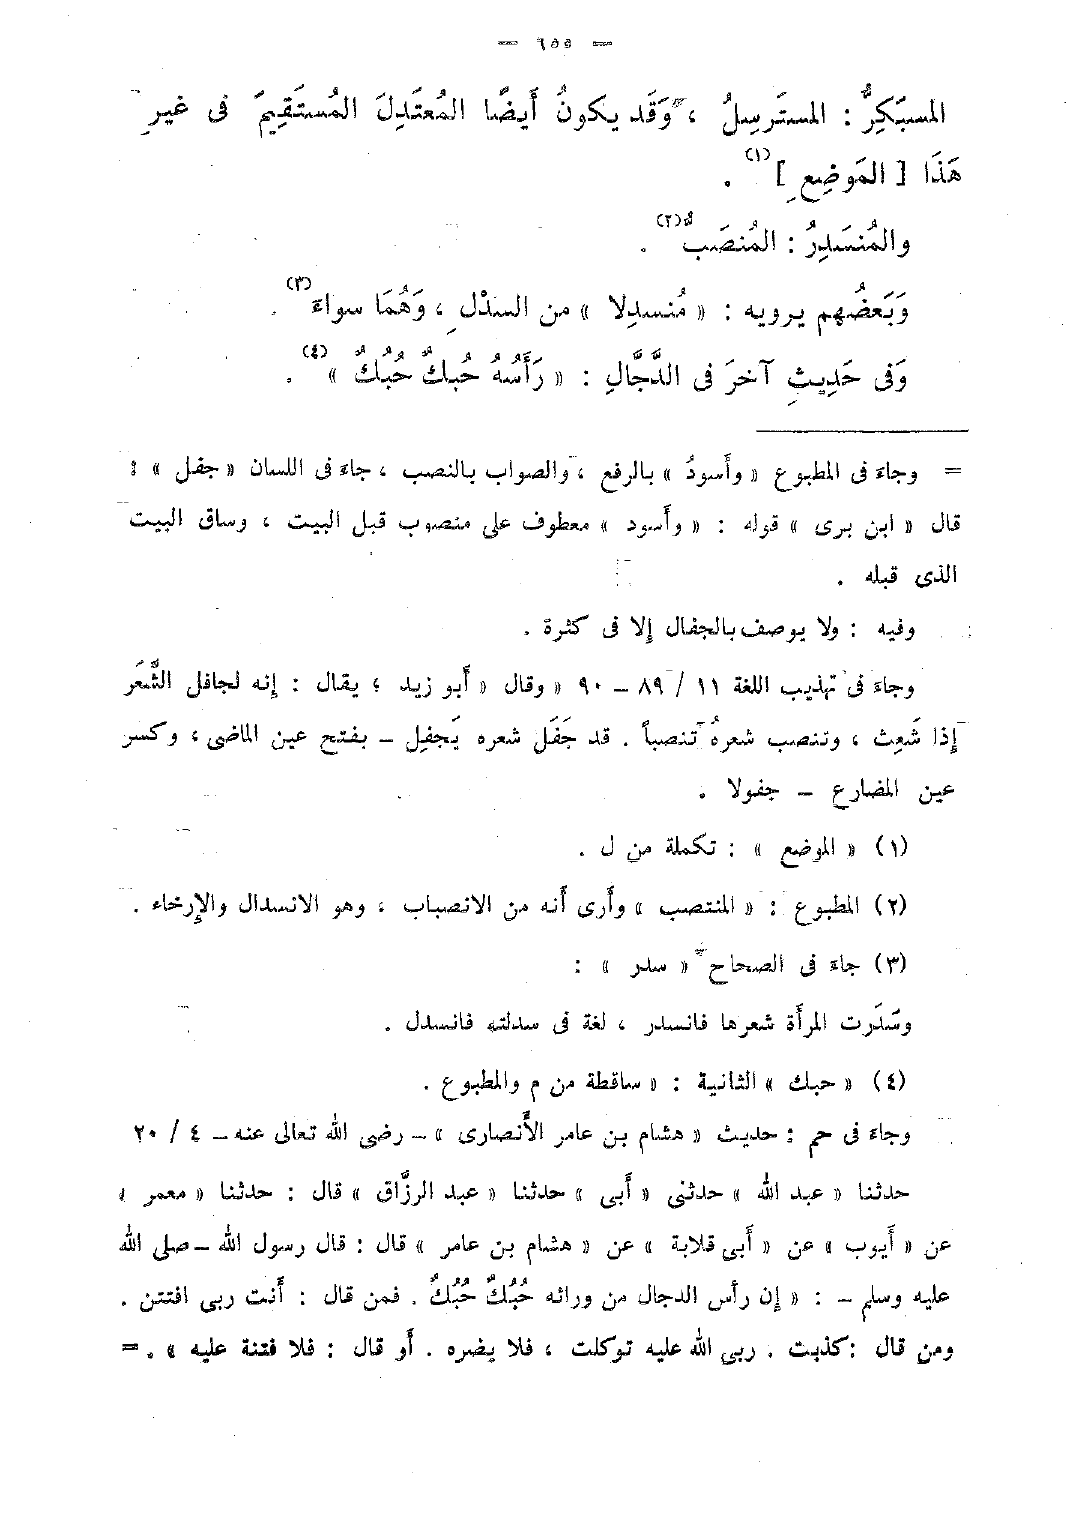 — ٦٥٥ —
المسبَكِرُّ : المستَرسِلُ ، وَقَد يكونُ أَيضًا المُعتَدِلَ المُستَقِيمَ فى غيرِ
هَذَا [ المَوضِعِ ] (١) .
والمُنسَدِرُ : المُنصَبُّ (٢) .
وَبَعَضُهم يرويه : « مُنسدِلا » من السدْلِ ، وَهُمَا سواءَ (٣) .
وَفى حَدِيثِ آخرَ فى الدَّجَّالِ : « رَأَسُهُ حُبكٌ حُبُكٌ » (٤) .
= وجاءَ فى المطبوع « وأَسودُ » بالرفع ، والصواب بالنصب ، جاءَ فى اللسان « جفل » :
قال « ابن برى » قوله : « وأَسود » معطوف على منصوب قبل البيت ، وساق البيت
الذى قبله .
وفيه : ولا يوصف بالجفال إلا فى كثرة .
وجاءَ فى تهذيب اللغة ١١ / ٨٩ – ٩٠ « وقال « أَبو زيد ؛ يقال : إنه لجافل الشَّعَر
إذا شَعِث ، وتنصب شعرهُ تنصباً . قد جَفَل شعره يَجفِل – بفتح عين الماضى ، وكسر
عين المضارع – جفولا .
(١) « الموضع » : تكملة من ل .
(٢) المطبوع : « المنتصب » وأَرى أَنه من الانصباب ، وهو الانسدال والإرخاء .
(٣) جاءَ فى الصحاح « سدر » :
وسَدَرت المرأَة شعرها فانسدر ، لغة فى سدلته فانسدل .
(٤) « حبك » الثانية : « ساقطة من م والمطبوع .
وجاءَ فى حم : حديث « هشام بن عامر الأَنصارى » – رضى الله تعالى عنه – ٤ / ٢٠
حدثنا « عبد الله » حدثنى « أَبى » حدثنا « عبد الرزَّاق » قال : حدثنا « معمر »
عن « أَيوب » عن « أَبى قلابة » عن « هشام بن عامر » قال : قال رسول الله – صلى الله
عليه وسلم – : « إن رأس الدجال من ورائه حُبُكٌ حُبُكٌ . فمن قال : أَنت ربى افتتن .
ومن قال : كذبت . ربى الله عليه توكلت ، فلا يضره . أَو قال : فلا فتنة عليه » . =